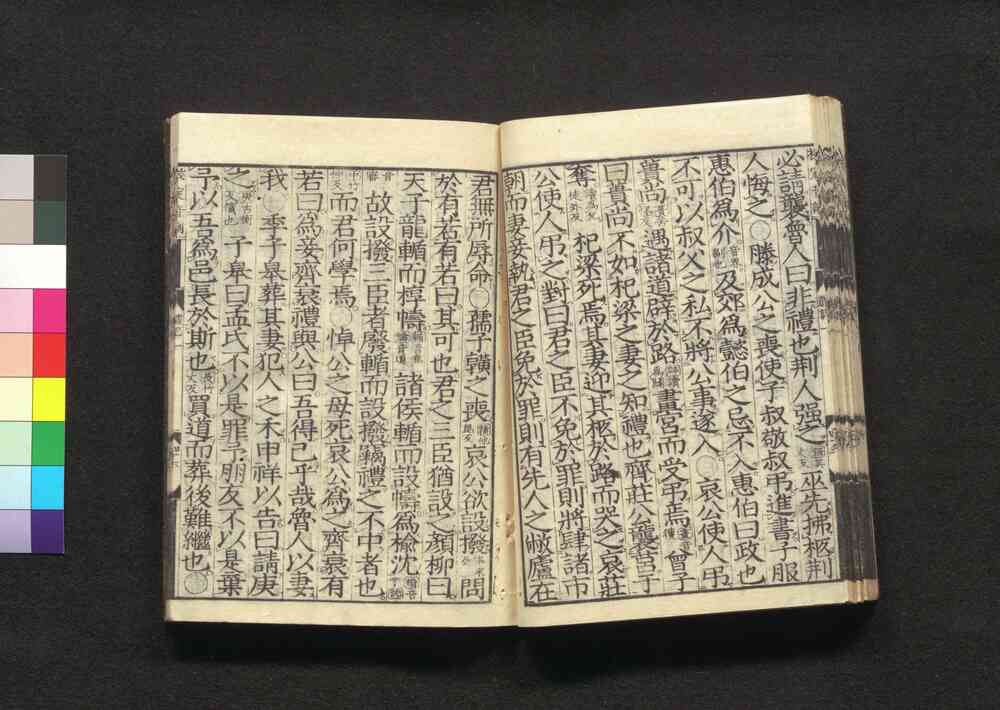 必請襲魯人曰非禮也荊人强之巫先拂柩荊
人悔之○滕成公之喪使子叔敬叔吊進書子服
惠伯爲介音界副也及郊爲懿伯之忌不入惠伯曰政也
不可以叔父之私不將公事遂入○哀公使人吊
蕢尚遇諸道辟於路辟讀爲闢畫宮而受吊焉曾子
曰蕢尚不如杞梁之妻之知禮也齊莊公襲莒于
奪杞梁死焉其妻迎其柩於路而哭之哀莊
公使人吊之對曰君之臣不免於罪則將肆諸市
朝而妻妾執君之臣免於罪則有先人之敝廬在
君無所辱命○孺子䵍之喪哀公欲設撥問
於有若有若曰其可也君之三臣猶設之顏柳曰
天子龍輴而椁幬諸侯輴而設幬爲榆沈
故設撥三臣者廢輴而設撥竊禮之不中者也
而君何學焉○悼公之母死哀公爲之齊衰有
若曰爲妾齊衰禮與公曰吾得已乎哉魯人以妻
我○季子臯葬其妻犯人之禾申祥以告曰請庚
之子臯曰孟氏不以是罪予朋友不以是棄
予以吾爲邑長於斯也買道而葬後難繼也○